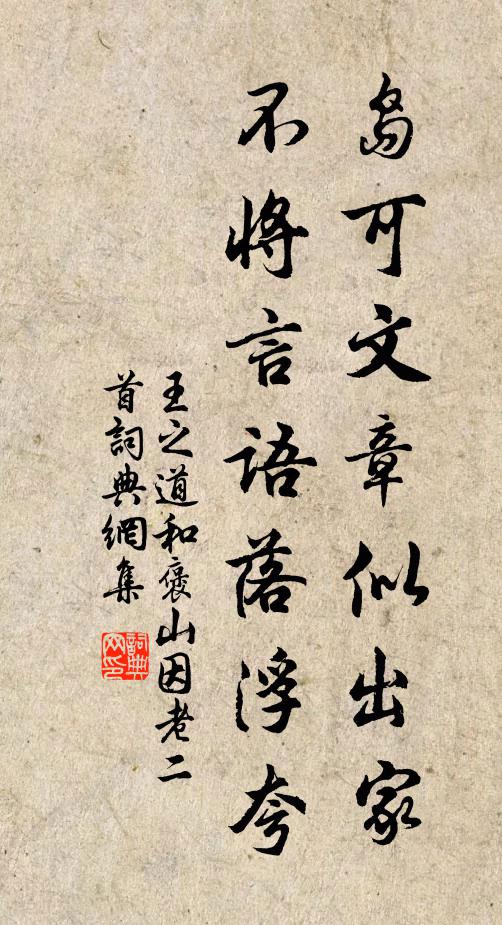 島可文章似出家
不將言語落浮夸
王之道和褒山因老二
首詞典網集
詞典網印